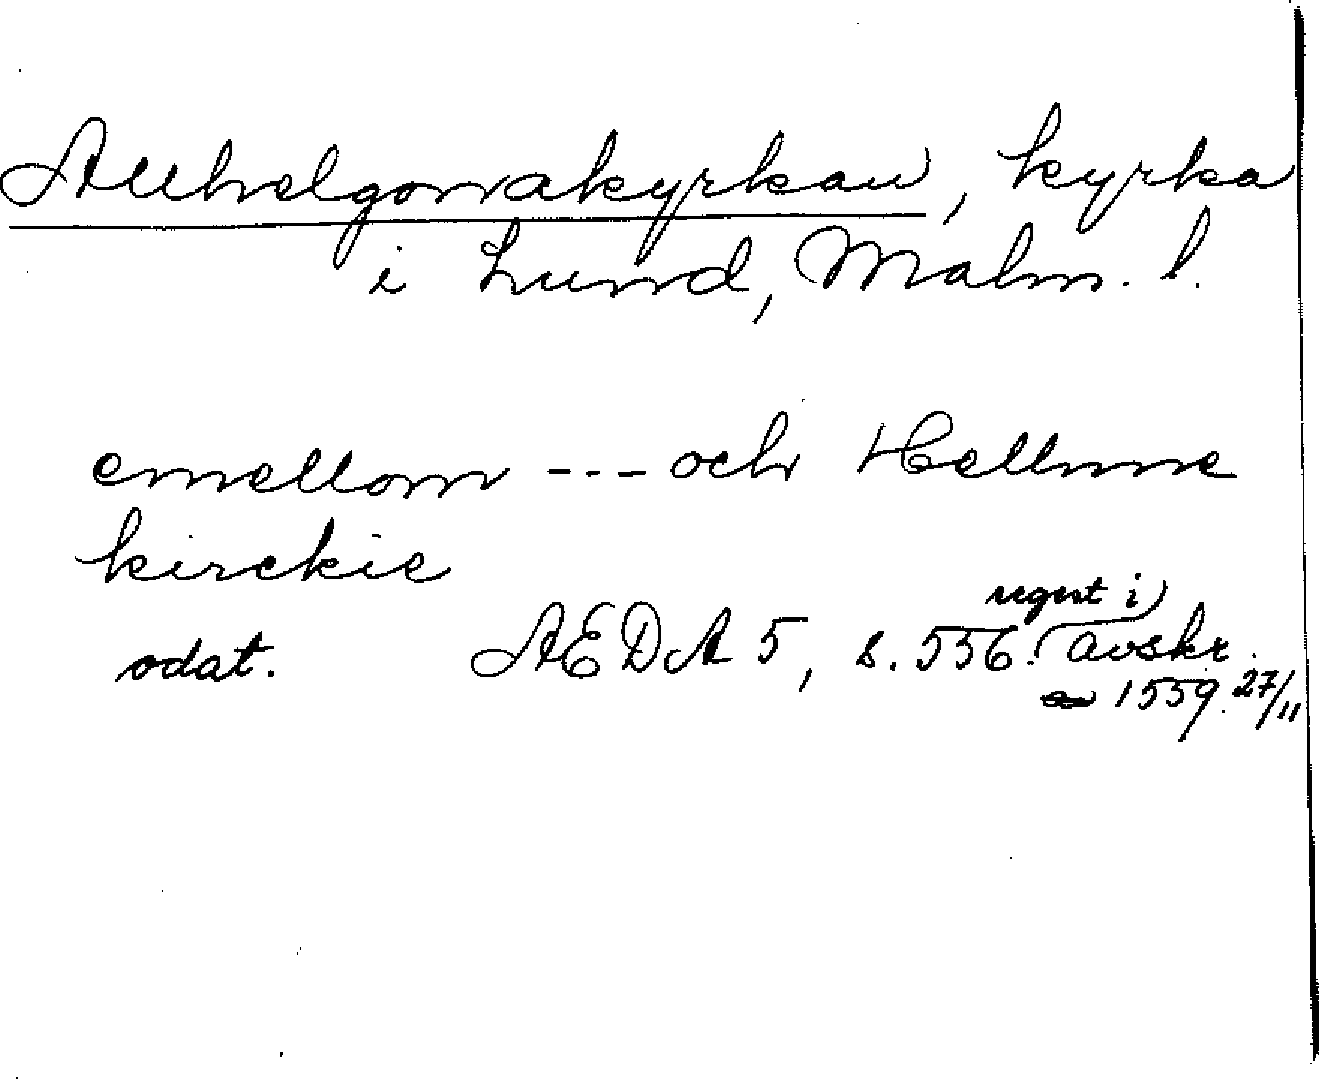 Allhelgonakyrkan, kyrka
i Lund, Malm. l.
emellom --- och Hellnne
kirckie
odat. AEDA 5, s. 556. (regest i) avskr.
1559 27/11